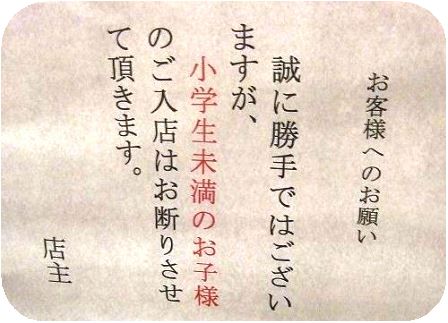 お客様へのお願い
誠に勝手ではござい
ますが、
小学生未満のお子様
のご入店はお断りさせ
て頂きます。
店主